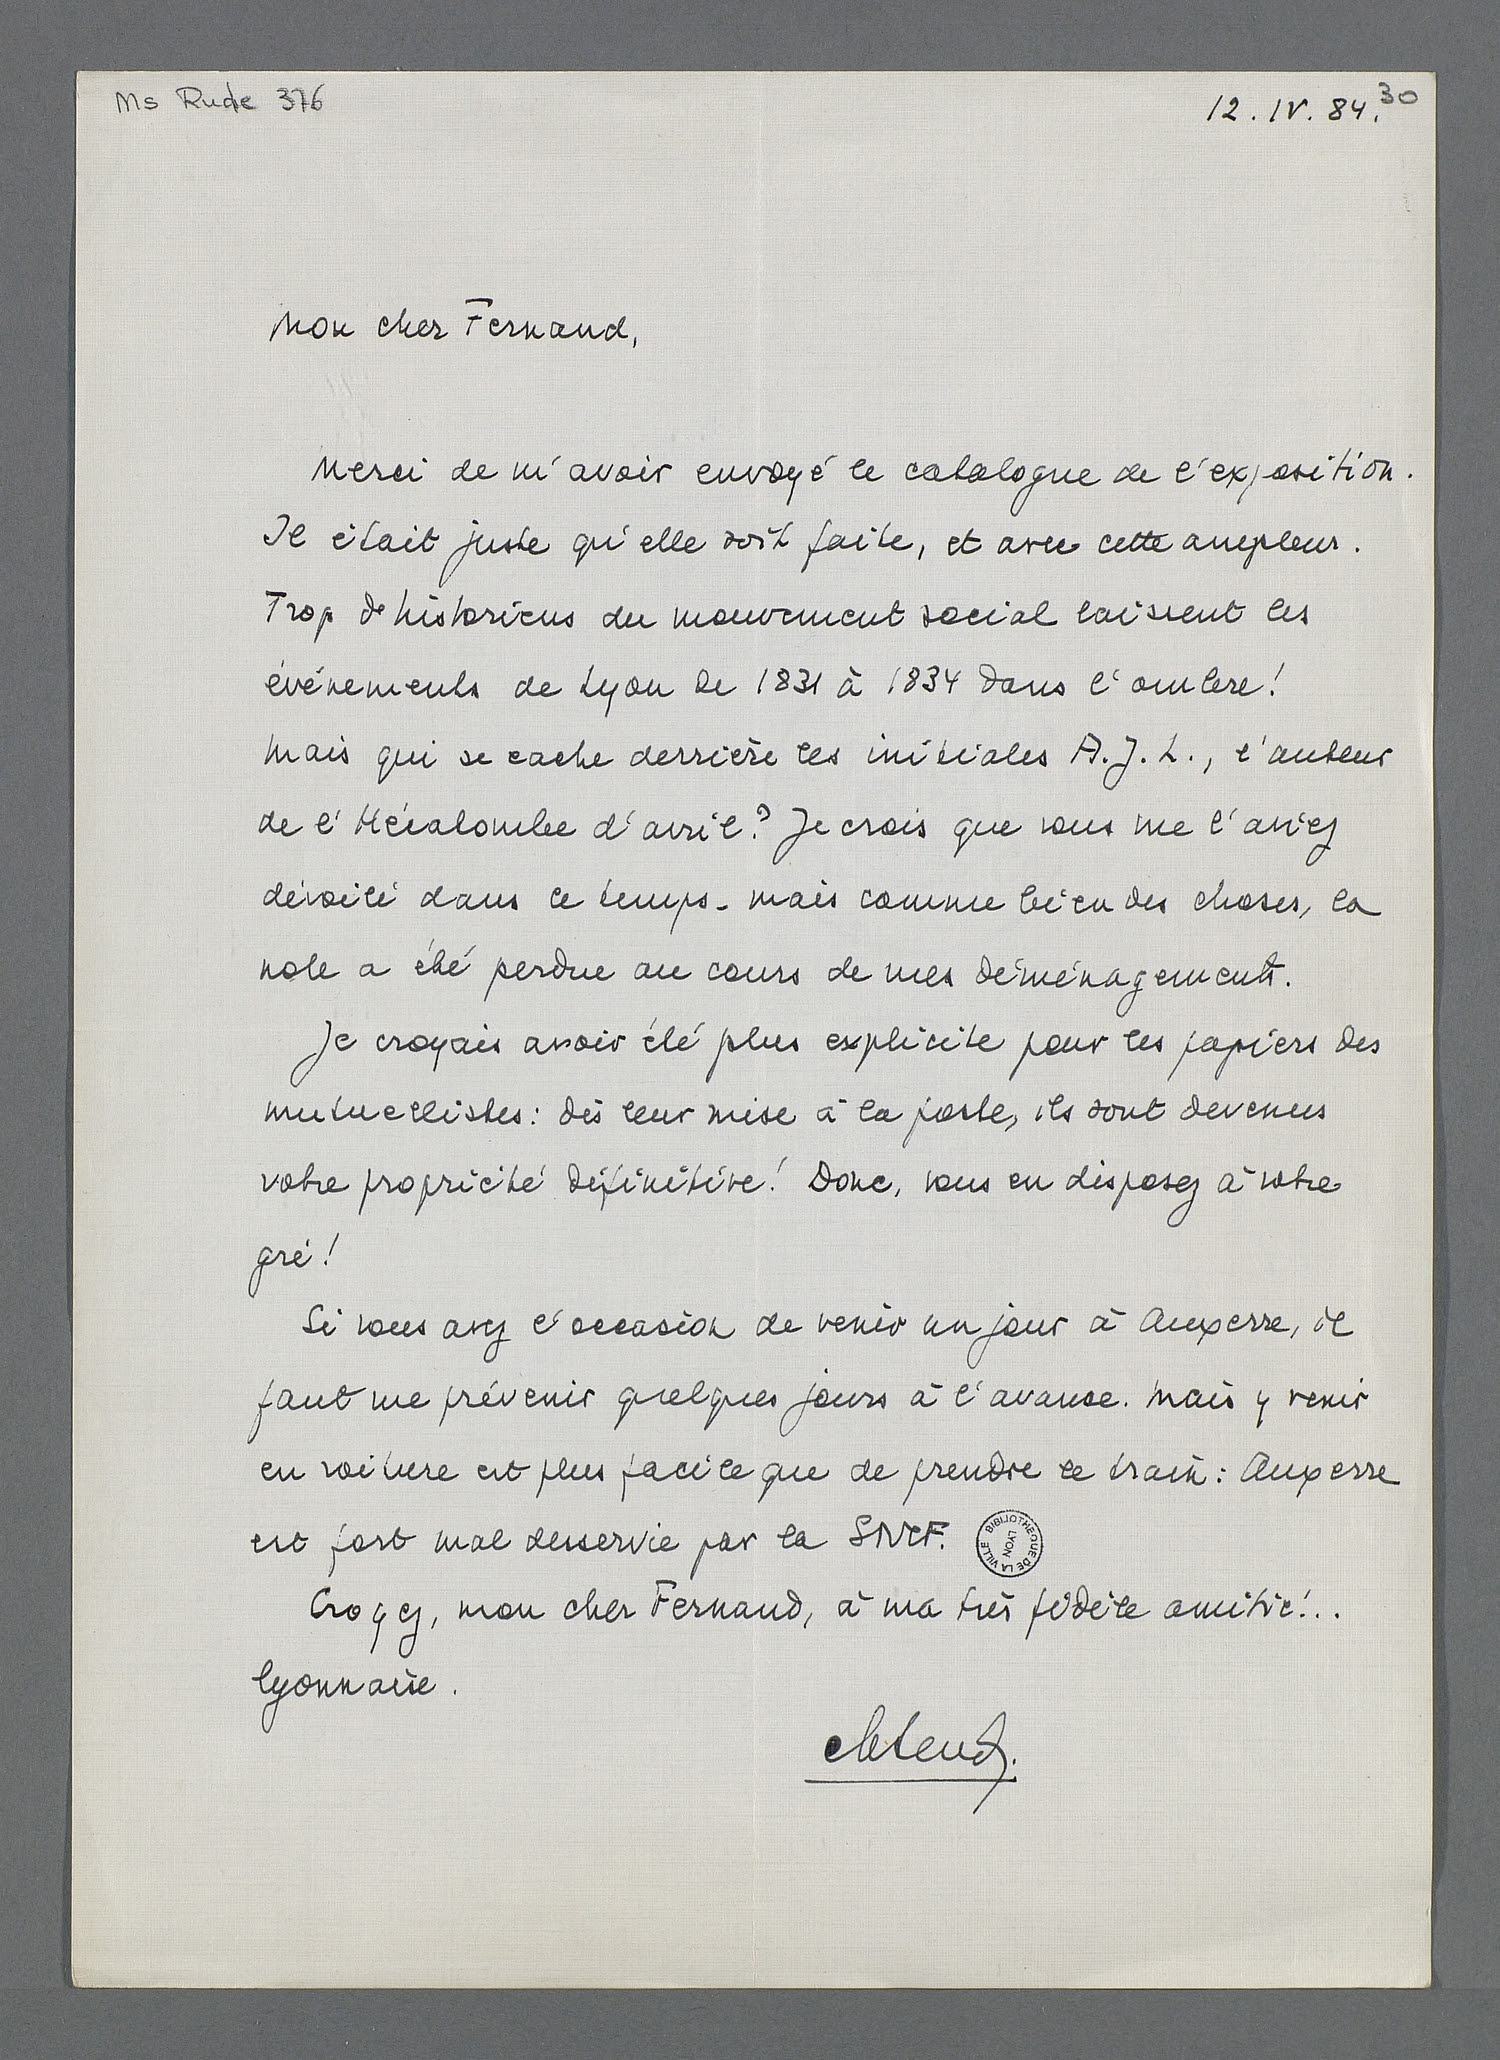 Ms Rude 376
12. IV. 84.
30
Mon cher Fernand,
Merci de m'avoir envoyé le catalogue de l'exposition.
Il était juste qu'elle soit faite, et avec cette ampleur.
Trop d'historiens du mouvement social laissent les
événements de Lyon de 1831 à 1834 dans l'ombre!
Mais qui se cache derrière les initiales A.J.L., l'auteur
de l'Hécatombe d'avril? Je crois que vous me l'aviez
dévoilé dans le temps - mais comme bien des choses, la
note a été perdue au cours de mes déménagements.
Je croyais avoir été plus explicite pour les papiers des
mutuellistes: dès leur mise à la poste, ils sont devenus
votre propriété définitive! Donc, vous en disposez à votre
gré!
Si vous avez l'occasion de venir un jour à Auxerre, il
faut me prévenir quelques jours à l'avance. Mais y venir
en voiture est plus facile que de prendre le train: Auxerre
est fort mal desservie par la SNCF.
BIBLIOTHEQUE DE LA VILLE LYON
Croyez, mon cher Fernand, à ma très fidèle amitié!..
lyonnaise.